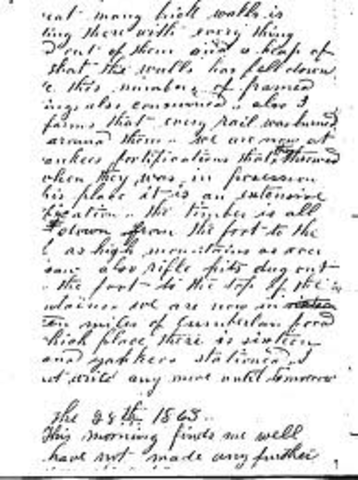 great many brick walls is
ting there with every thing
out of them and a heap of
that the walls has fell down
this number of framed
ings also consumed. also I
farms that every rail was burned
around them. we are now at
ankees fortifications that throwed
when they was in possession
his place it is an extensive
fication. the timber is all
down from the foot to the
as high mountains as ever
saw also rifle pits dug out
the foot to the top of the
we are now in
miles of Cumberlan foord
which place there is sixteen
and yankees stationed. I
not write any more until tomorrow
The 28th 1863.
This morning finds me well
have not made any further